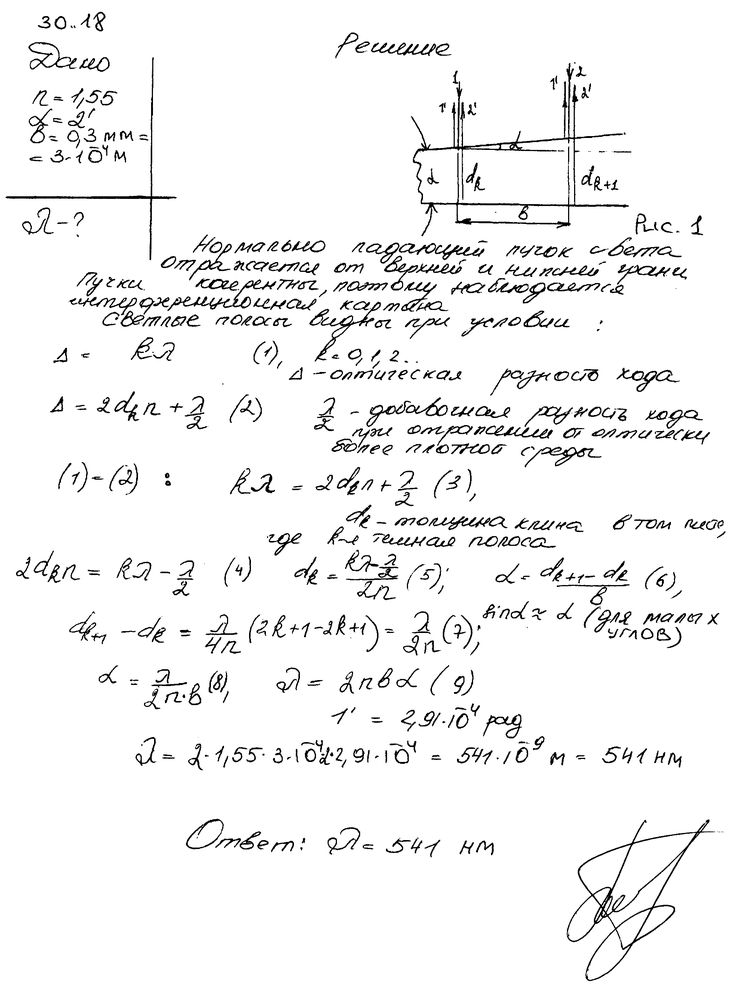 30.18
Дано
n = 1,55
α = 2'
b = 0,3 мм =
= 3·10⁻⁴ м
λ - ?
Решение
1 2
1' 2' 1' 2'
α
α dₖ dₖ₊₁
b
Рис. 1
Нормально падающий пучок света
отражается от верхней и нижней грани
Пучки когерентны, поэтому наблюдается
интерференционная картина
Светлые полосы видны при условии :
Δ = kλ (1), k = 0, 1, 2..
Δ - оптическая разность хода
Δ = 2dₖn + λ/2 (2) λ/2 - добавочная разность хода
при отражении от оптически
более плотной среды
(1) = (2) : kλ = 2dₖn + λ/2 (3),
dₖ - толщина клина в том месте,
где k-я темная полоса
2dₖn = kλ - λ/2 (4) dₖ = (kλ - λ/2)/2n (5); α = (dₖ₊₁ - dₖ)/b (6),
dₖ₊₁ - dₖ = λ/4n (2k+1-2k+1) = λ/2n (7); sinα ≈ α (для малых
углов)
α = λ/2n·b (8), λ = 2nbα (9)
1' = 2,91·10⁻⁴ рад
λ = 2·1,55·3·10⁻⁴·2·2,91·10⁻⁴ = 541·10⁻⁹ м = 541 нм
Ответ: λ = 541 нм